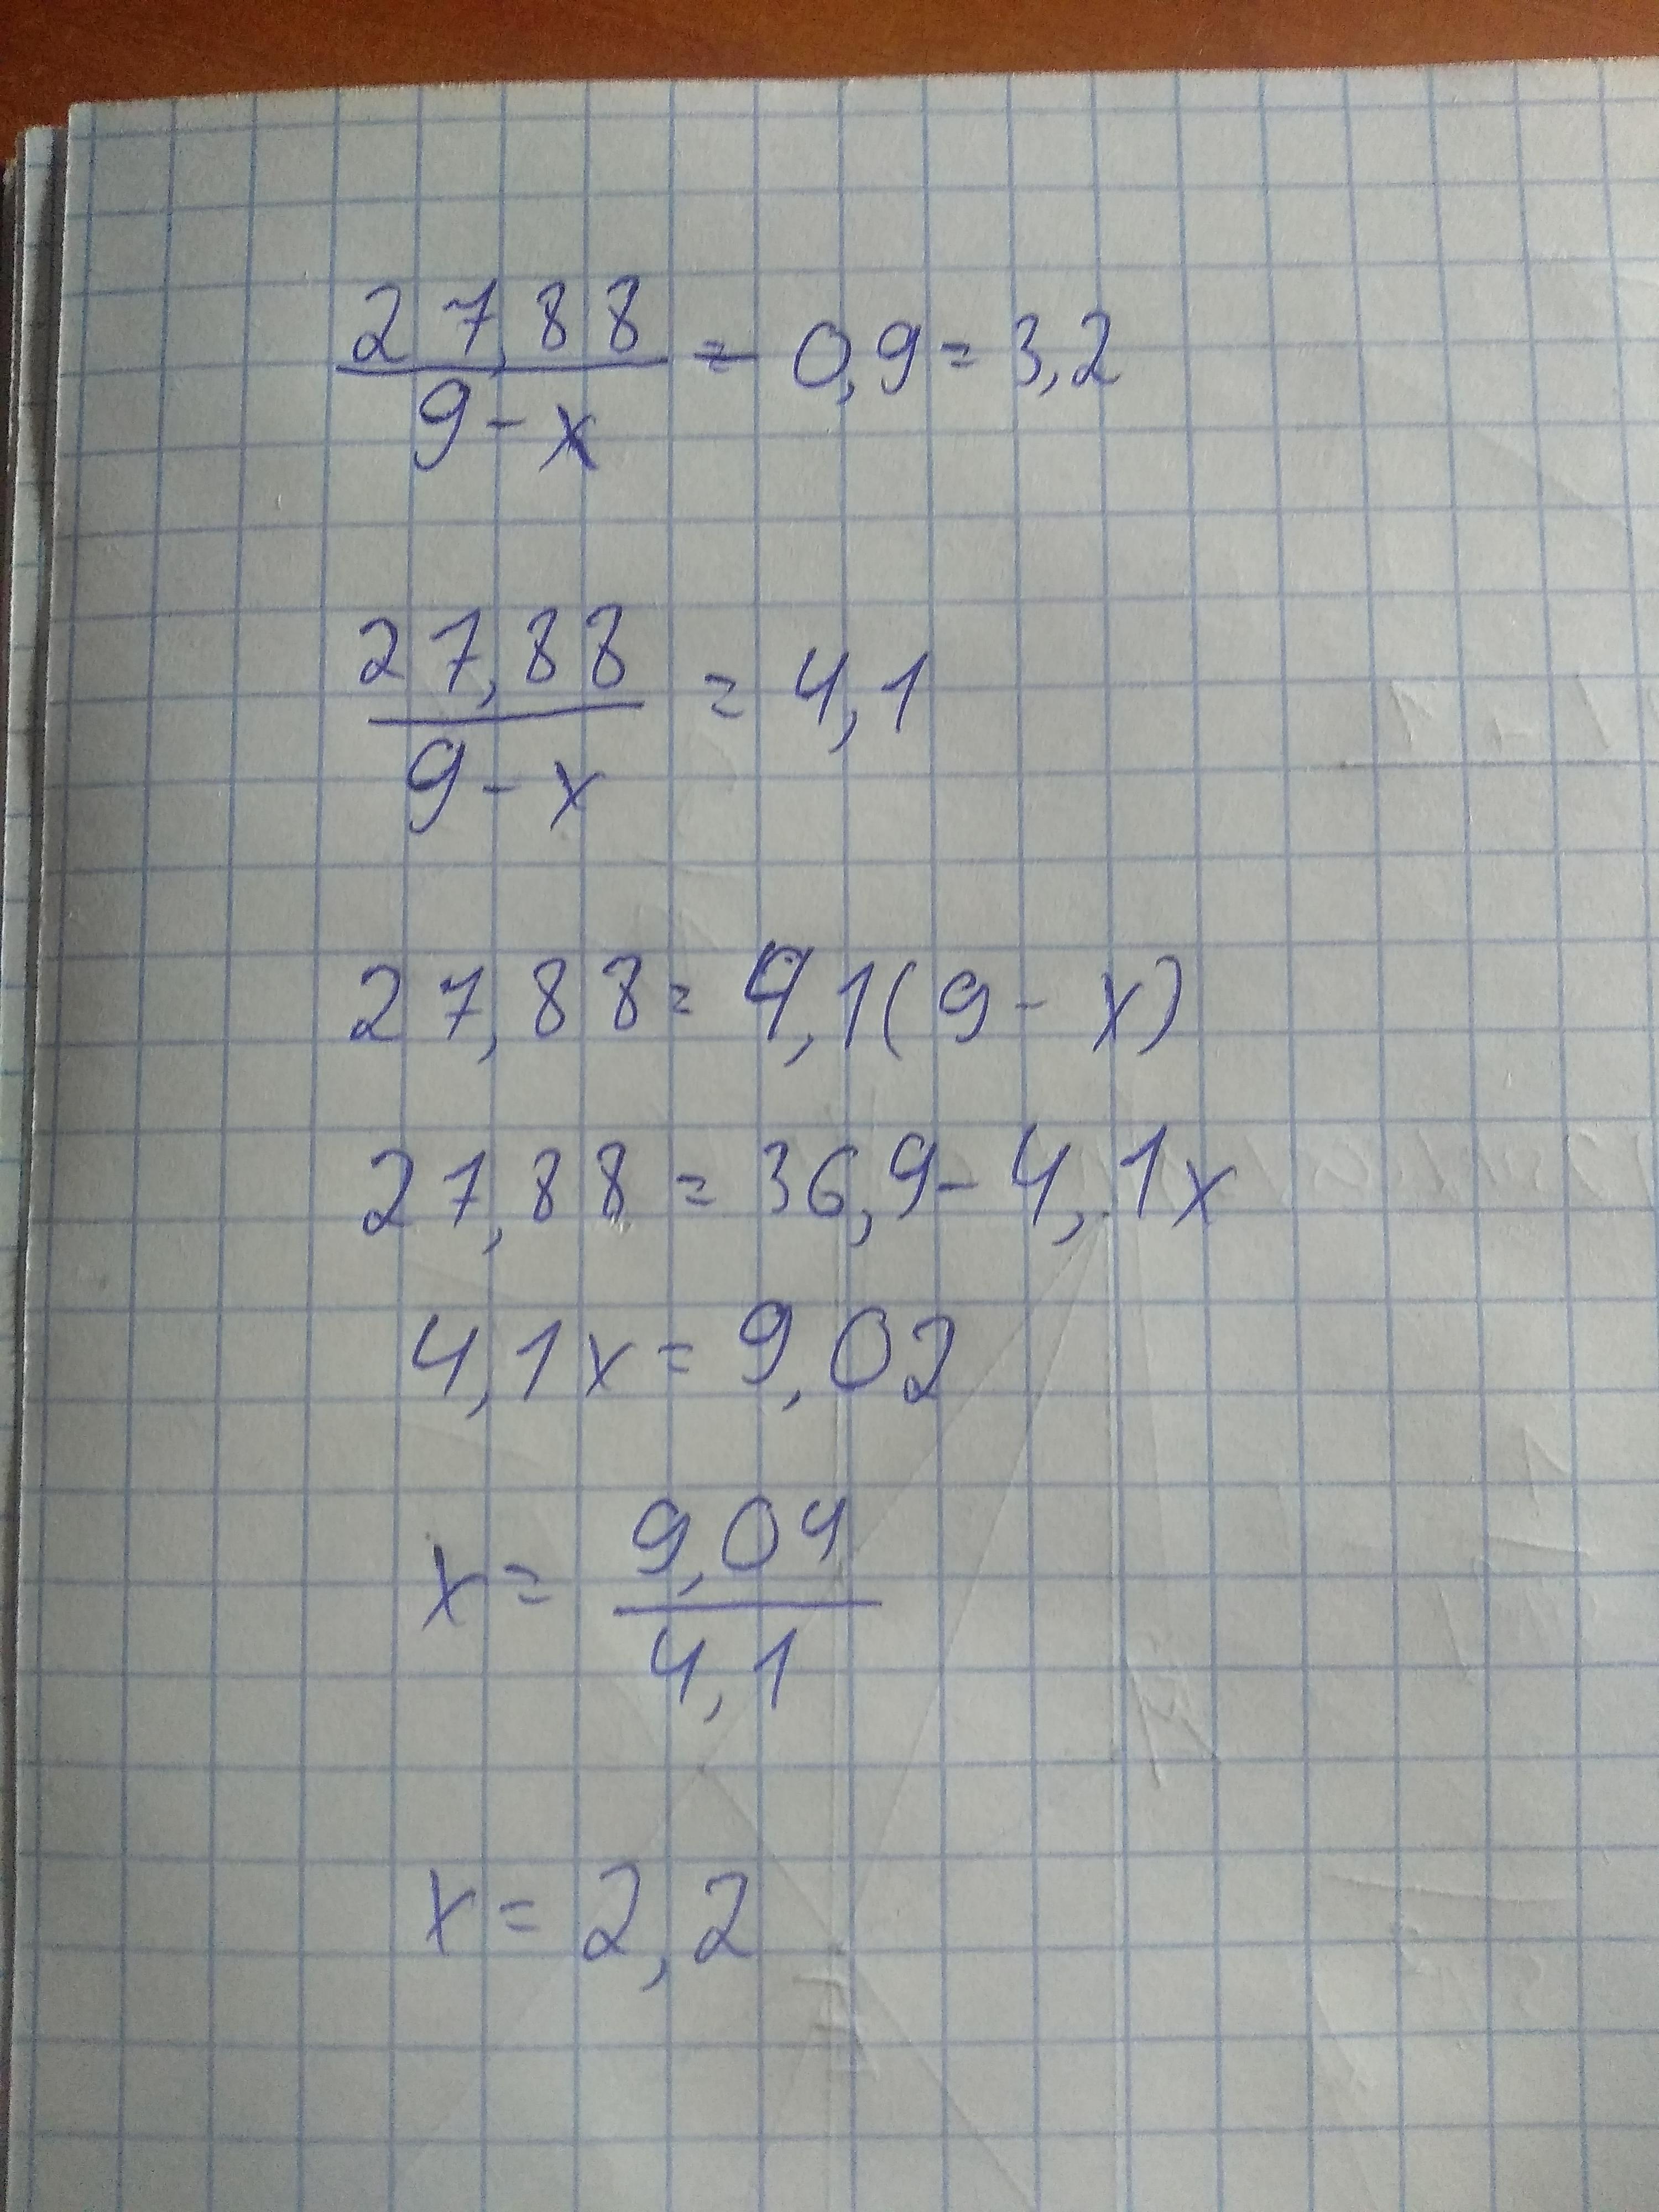 27,88/(9-x) - 0,9 = 3,2
27,88/(9-x) = 4,1
27,88 = 4,1(9-x)
27,88 = 36,9 - 4,1x
4,1x = 9,02
x = 9,04/4,1
x = 2,2